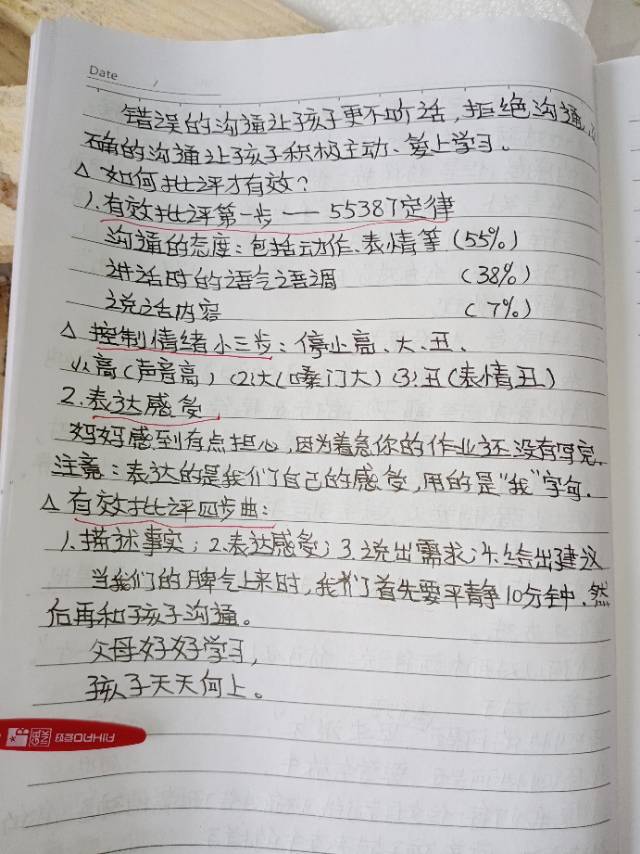 Date /
错误的沟通让孩子更不听话，拒绝沟通，
确的沟通让孩子积极主动、爱上学习。
△ 如何批评才有效？
1.有效批评第一步——55387定律
沟通的态度：包括动作、表情等（55%）
讲话时的语气语调（38%）
说话内容（7%）
△ 控制情绪小三步：停止高、大、丑、
(1)高（声音高）(2)大（嗓门大）(3)丑（表情丑）
2.表达感受
妈妈感到有点担心，因为着急你的作业还没有写完，
注意：表达的是我们自己的感受，用的是“我”字句．
△ 有效批评四步曲：
1.描述事实；2.表达感受；3.说出需求；4.给出建议
当我们的脾气上来时，我们首先要平静10分钟．然
后再和孩子沟通。
父母好好学习，
孩子天天向上。
AIHAO爱好